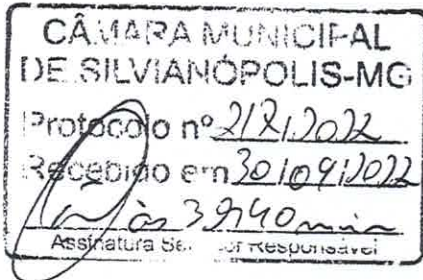 CÂMARA MUNICIPAL
DE SILVIANÓPOLIS-MG
Protocolo nº /2022
Recebido em 30/09/2022
às
Assinatura Responsável